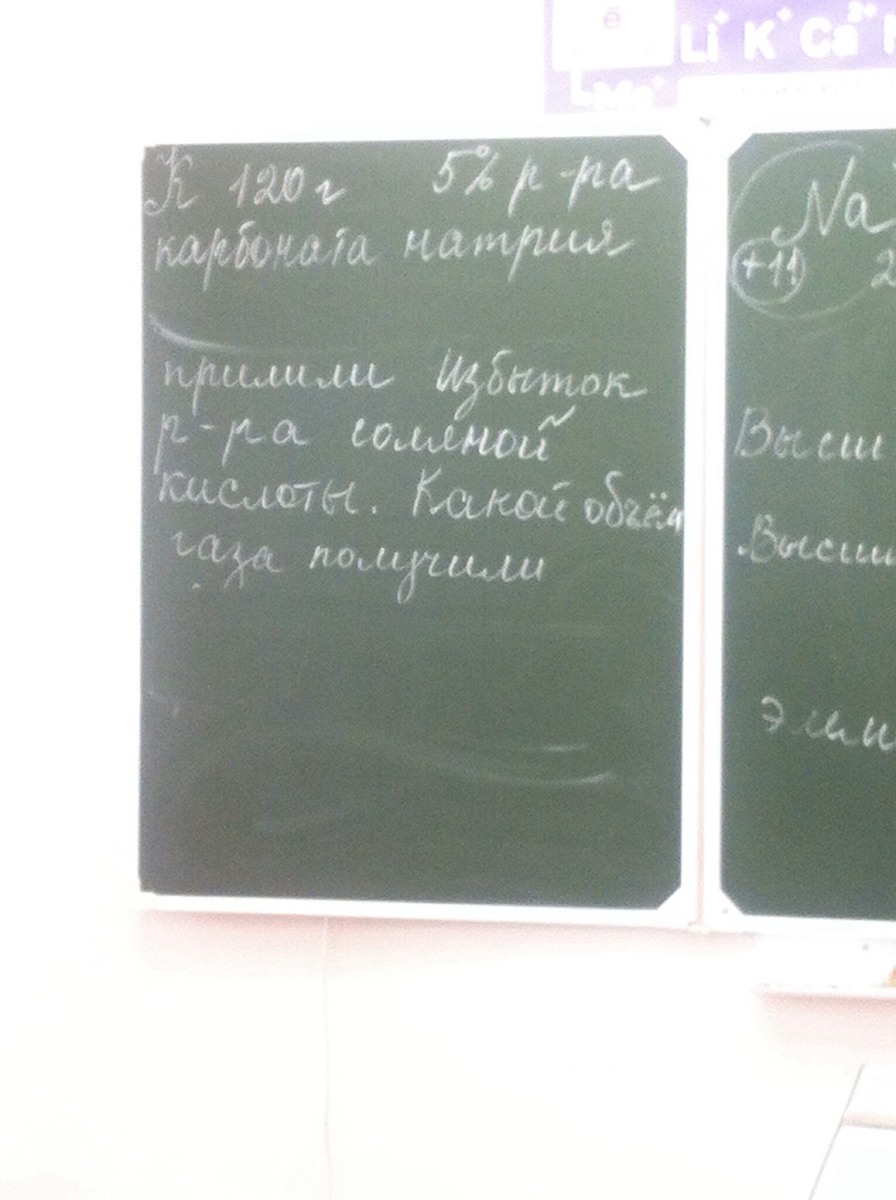 ē
Li⁺ K⁺ Ca²⁺
Me⁺
К 120 г 5% р-ра
карбоната натрия
прилили избыток
р-ра соляной
кислоты. Какой объём
газа получили
Na
+11 2
Высш
Высш
элем